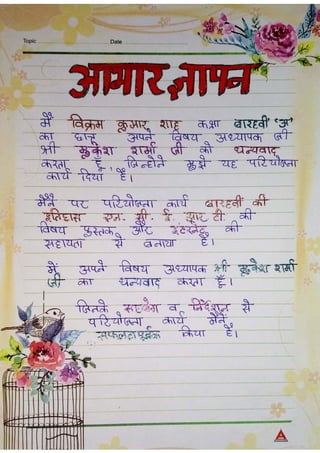 Topic Date
आभार ज्ञापन
मैं विक्रम कुमार शाह कक्षा बारहवीं 'अ'
का छात्र अपने विषय अध्यापक जी
श्री मुकेश शर्मा जी को धन्यवाद
करता हूँ, जिन्होंने मुझे यह परियोजना
कार्य दिया है।
मैंने पर परियोजना कार्य बारहवीं की
इतिहास एन. सी. ई. आर टी. की
विषय पुस्तक और इंटरनेट की
सहायता से बनाया है।
में अपने विषय अध्यापक श्री मुकेश शर्मा
जी का धन्यवाद करता हूँ।
जिनके सहयोग व निर्देशन से
परियोजना कार्य मैंने
सफलतापूर्वक किया है।